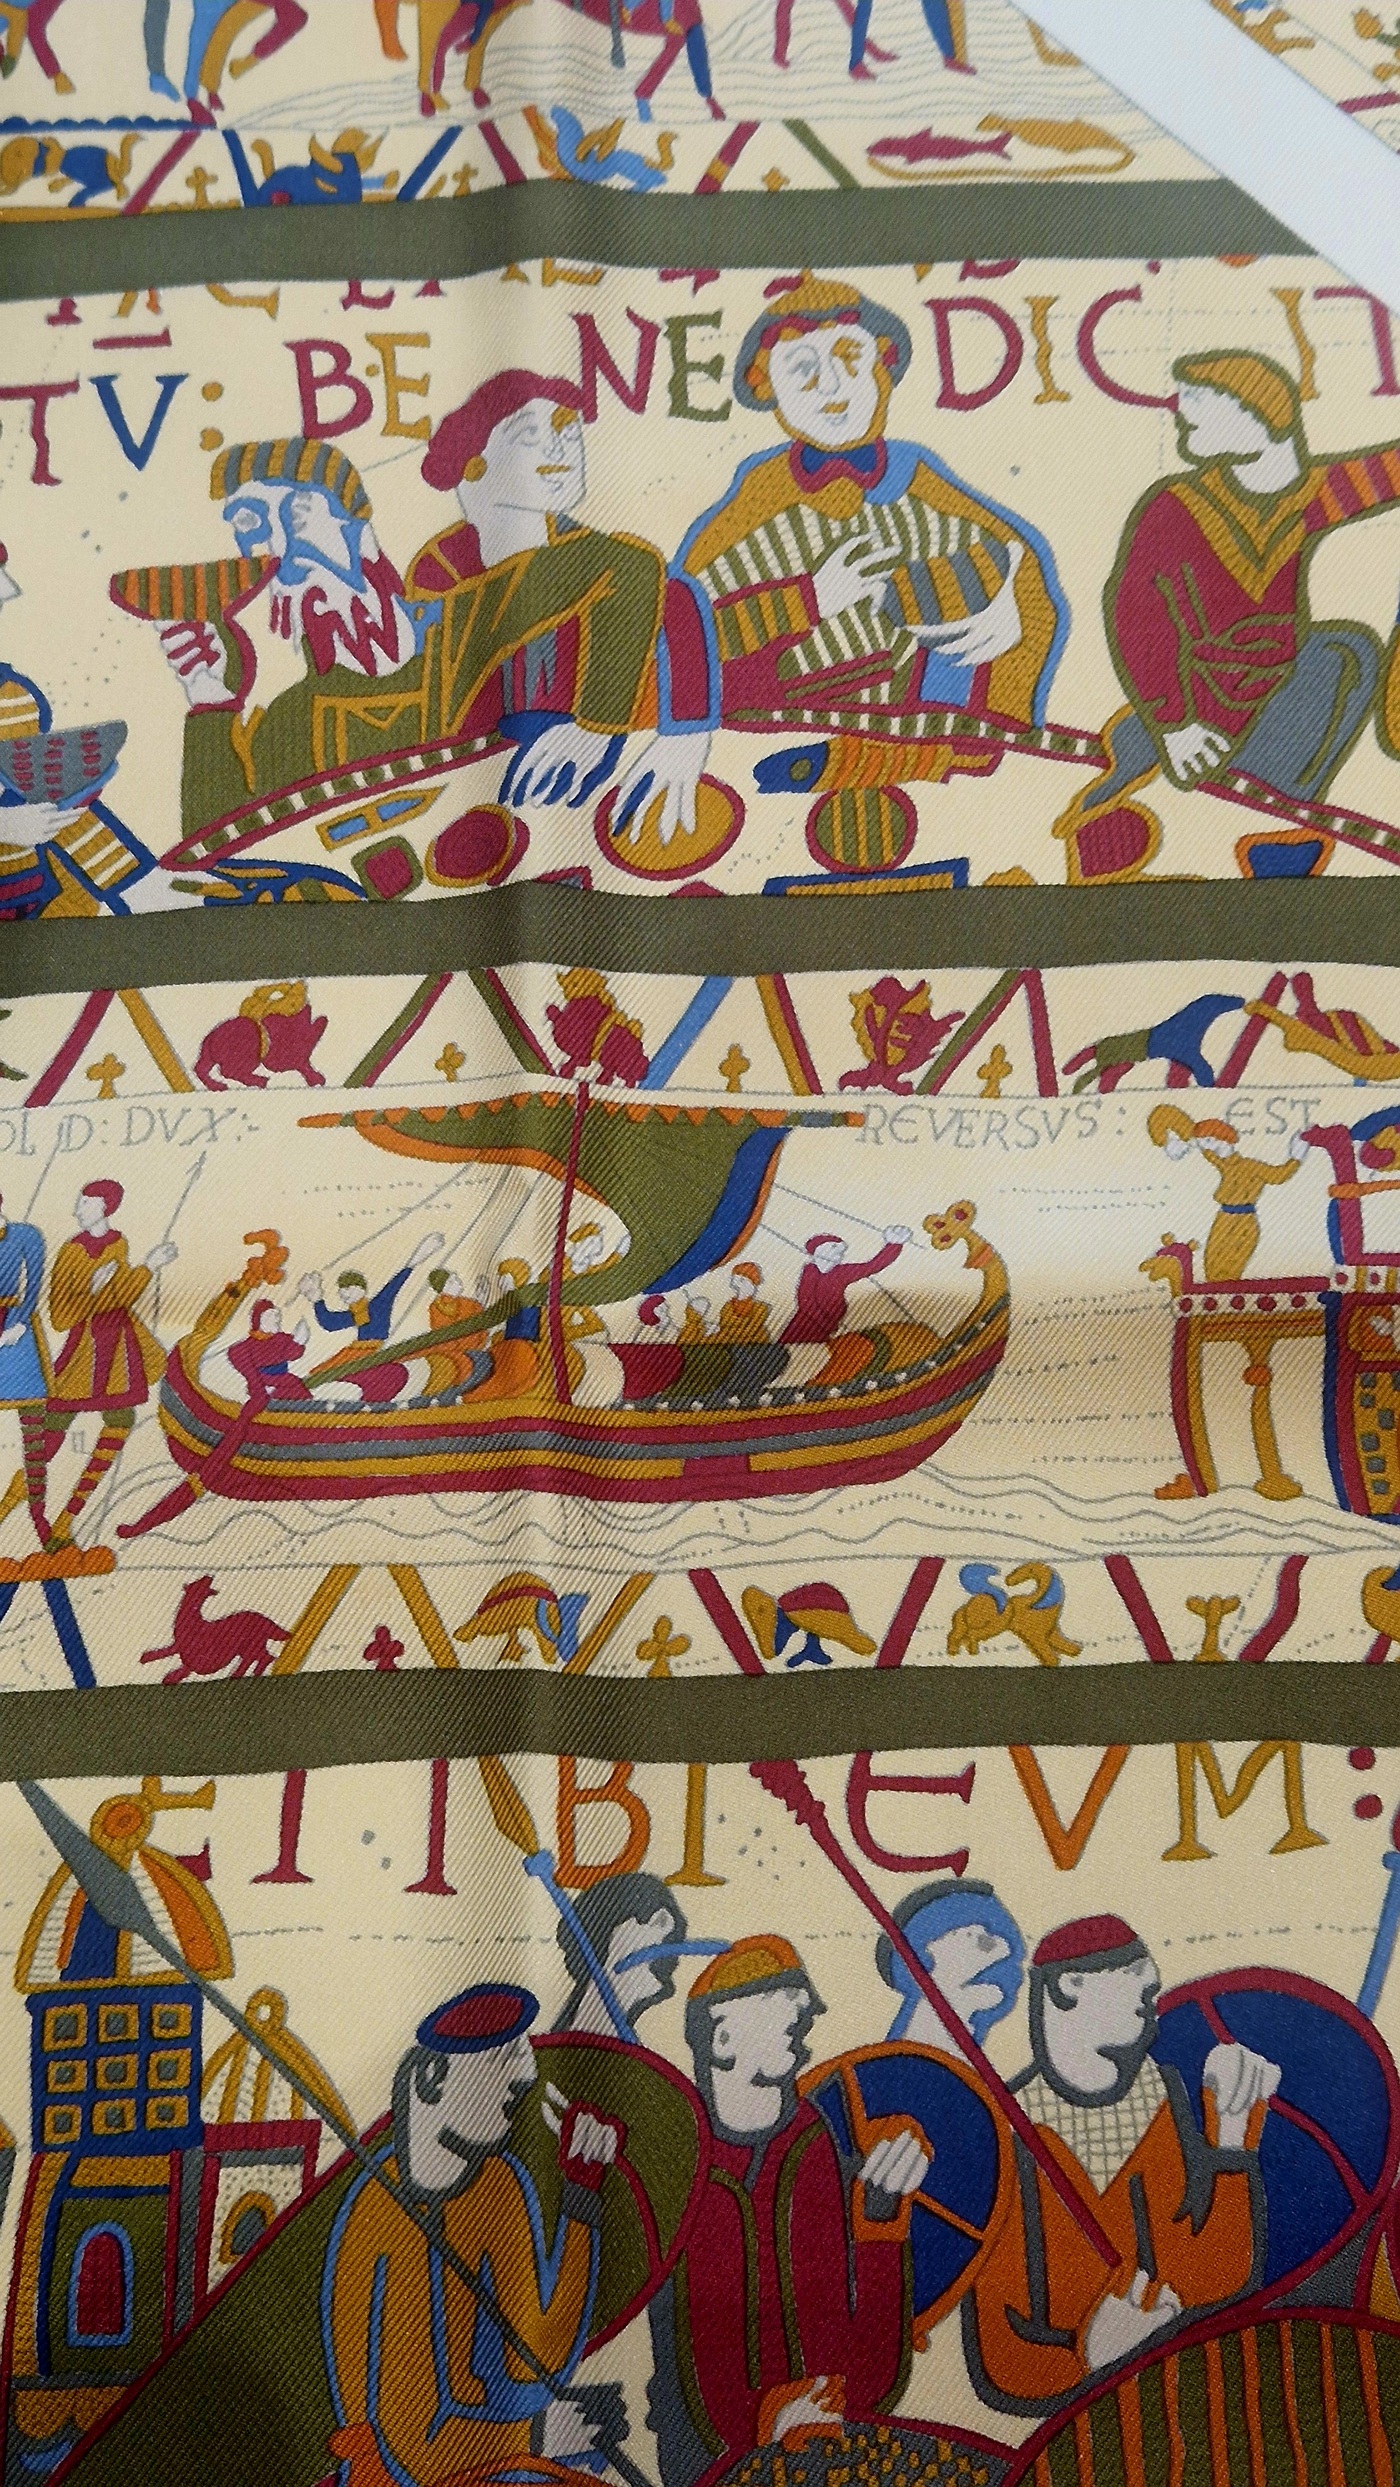 TV: BE NE DICIT
OLD: DVX:- REVERSVS: EST
ET IBI EVM: